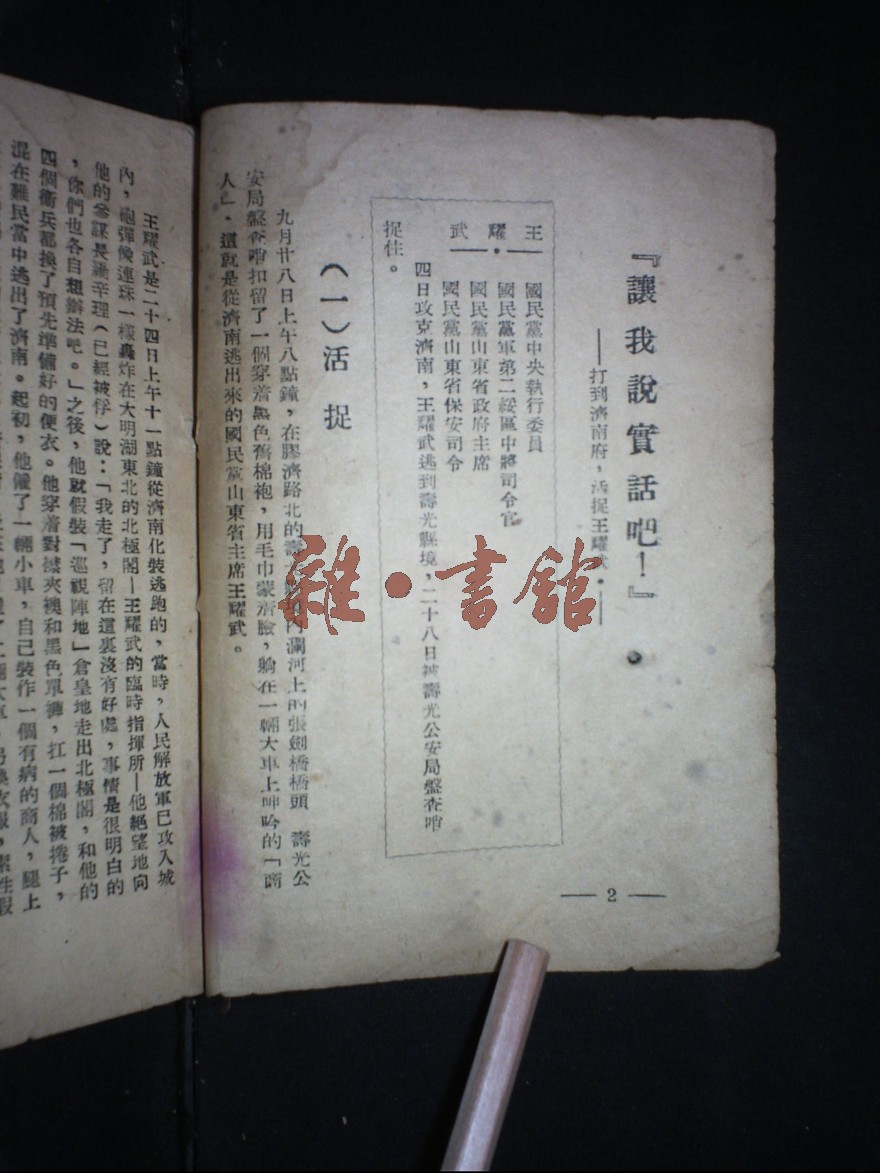 『讓我說實話吧！』
——打到濟南府，活捉王耀武·——
王耀武
國民黨中央執行委員
國民黨軍第二綏區中將司令官
國民黨山東省政府主席
國民黨山東省保安司令
四日攻克濟南，王耀武逃到壽光縣境，二十八日被壽光公安局盤查哨
捉住。
（一）活捉
九月廿八日上午八點鐘，在膠濟路北的壽內瀰河上的張劍橋橋頭 壽光公
安局盤查哨扣留了一個穿着黑色舊棉袍，用毛巾蒙着臉，躺在一輛大車上呻吟的「商
人」。這就是從濟南逃出來的國民黨山東省主席王耀武。
—— 2 ——
王耀武是二十四日上午十一點鐘從濟南化裝逃跑的，當時，人民解放軍已攻入城
內，砲彈像連珠一樣轟炸在大明湖東北的北極閣—王耀武的臨時指揮所—他絕望地向
他的參謀長羅辛理（已經被俘）說：「我走了，留在這裏沒有好處，事情是很明白的
，你們也各自想辦法吧。」之後，他就假裝「巡視陣地」倉皇地走出北極閣，和他的
四個衛兵都換了預先準備好的便衣。他穿着對襟夾襖和黑色單褲，扛一個棉被捲子，
混在難民當中逃出了濟南。起初，他僱了一輛小車，自己裝作一個有病的商人，腿上
雜·書館